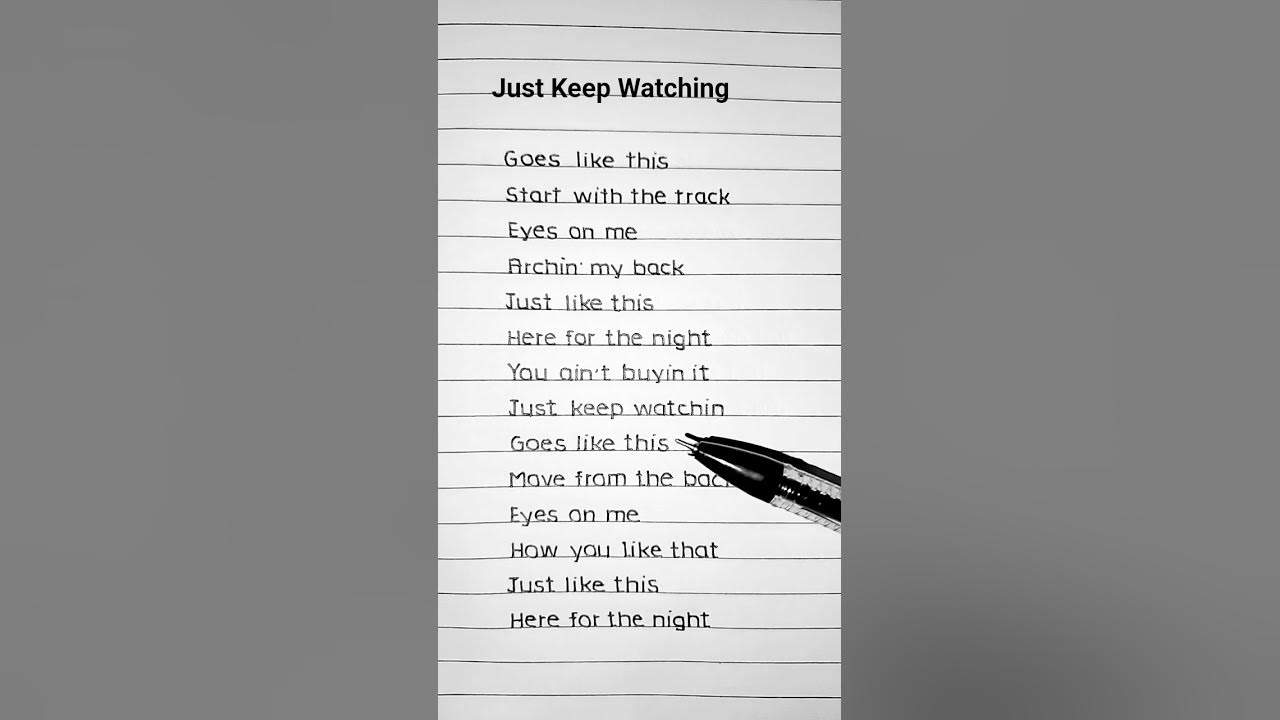 Just Keep Watching
Goes like this
Start with the track
Eyes on me
Archin' my back
Just like this
Here for the night
You ain't buyin it
Just keep watchin
Goes like this
Move from the back
Eyes on me
How you like that
Just like this
Here for the night